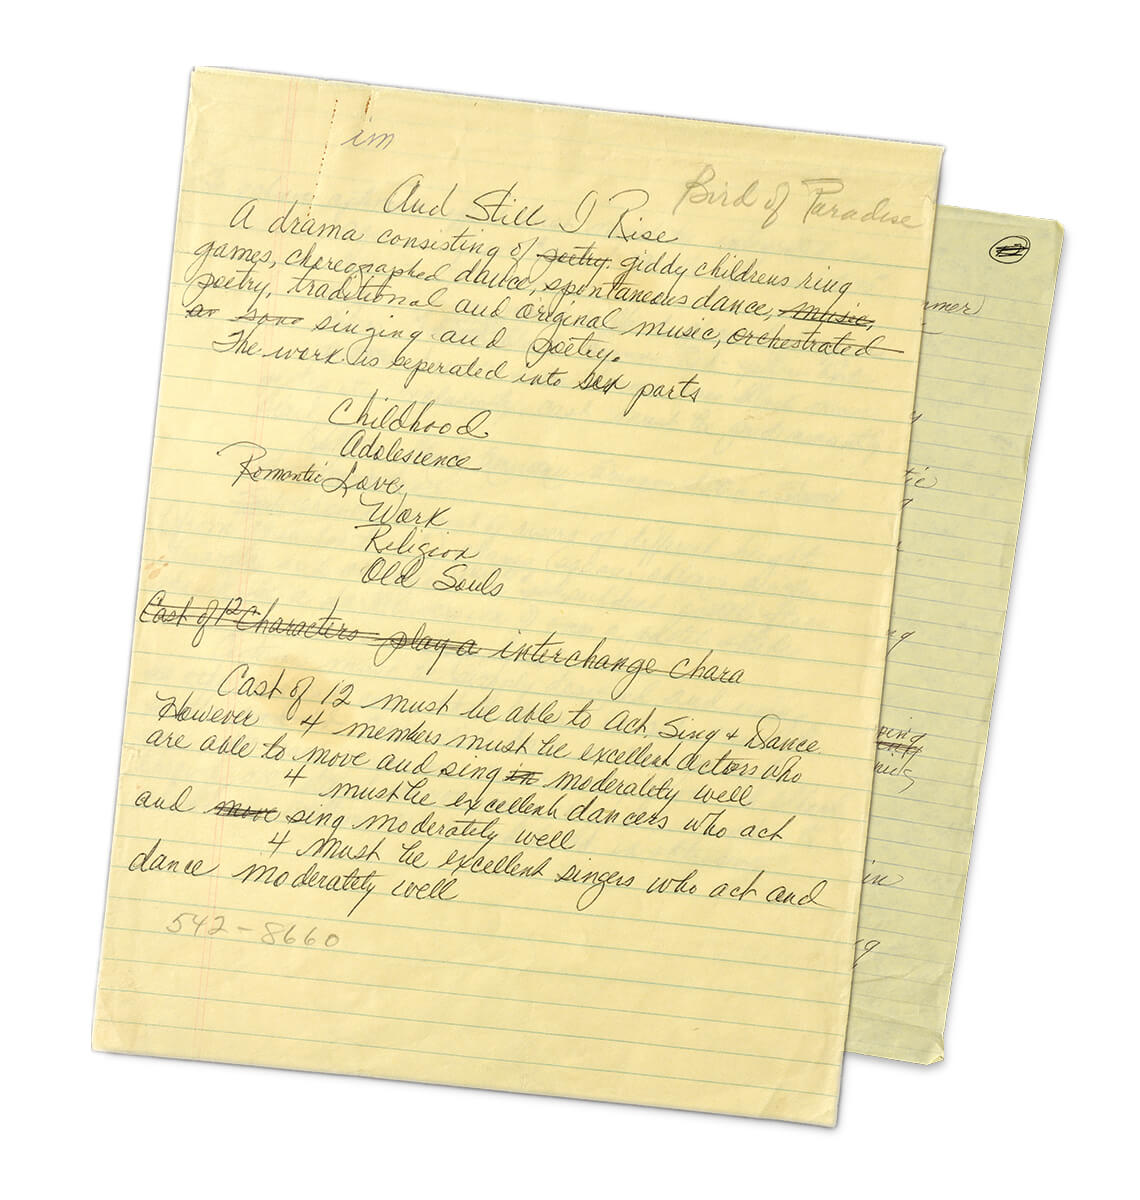 im
Bird of Paradise
And Still I Rise
A drama consisting of poetry. giddy childrens ring
games, choreographed dance, spontaneous dance, music,
poetry, traditional and original music, orchestrated
singing and poetry.
The work is seperated into six parts
Childhood
Adolescence
Romantic Love
Work
Religion
Old Souls
Cast of 12 Characters play a interchange chara
Cast of 12 must be able to act, Sing + Dance
However 4 members must be excellent actors who
are able to move and sing in moderately well
4 must be excellent dancers who act
and move sing moderately well
4 must be excellent singers who act and
dance moderately well
542-8660
in